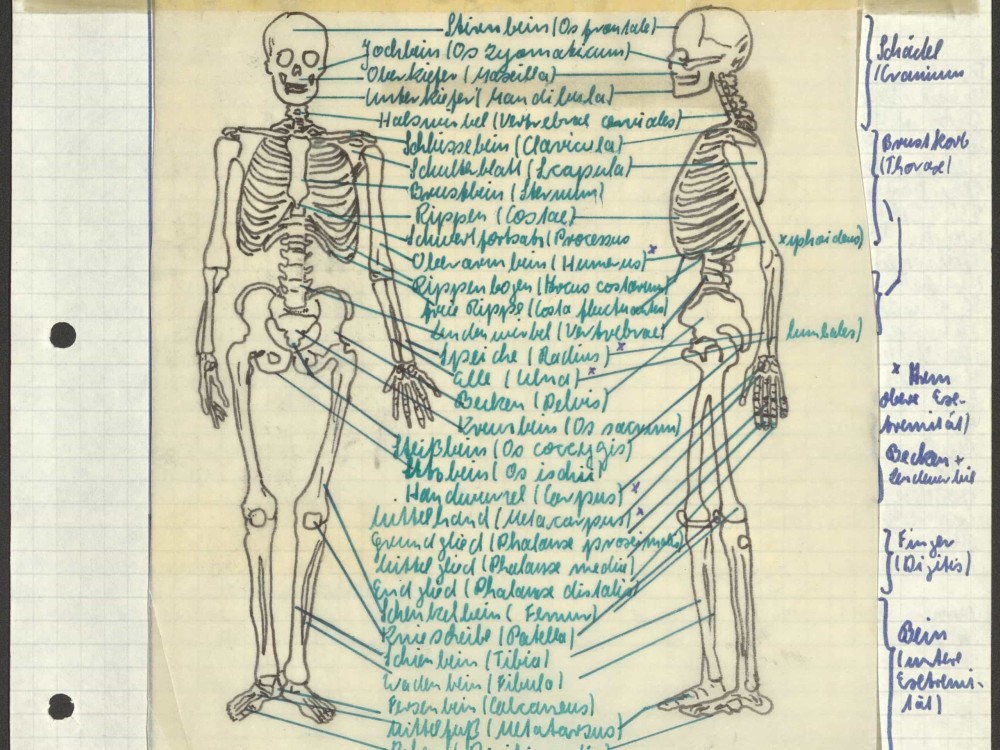 Stirnbein (Os frontale)
Jochbein (Os Zygomaticum)
Oberkiefer (Maxilla)
Unterkiefer (Mandibula)
Halswirbel (Vertebrae cervicales)
Schlüsselbein (Clavicula)
Schulterblatt (Scapula)
Brustbein (Sternum)
Rippen (Costae)
Schwertfortsatz (Processus xyphoideus)
Oberarmbein (Humerus) x
Rippenbogen (Arcus costarum)
freie Rippe (Costa fluctuantes)
Lendenwirbel (Vertebrae lumbales)
Speiche (Radius) x
Elle (Ulna) x
Becken (Pelvis)
Kreuzbein (Os sacrum)
Steißbein (Os coccygis)
Sitzbein (Os ischii)
Handwurzel (Carpus) x
Mittelhand (Metacarpus) x
Grundglied (Phalanx proximalis)
Mittelglied (Phalanx media)
Endglied (Phalanx distalis)
Schenkelbein (Femur)
Kniescheibe (Patella)
Schienbein (Tibia)
Wadenbein (Fibula)
Fersenbein (Calcaneus)
Mittelfuß (Metatarsus)
Schädel
(Cranium
Brustkorb
(Thorax)
x
obere Ex-
tremität)
Becken +
Lendenwirbel
Finger
(Digitis)
Bein
(untere
Extremi-
tät)